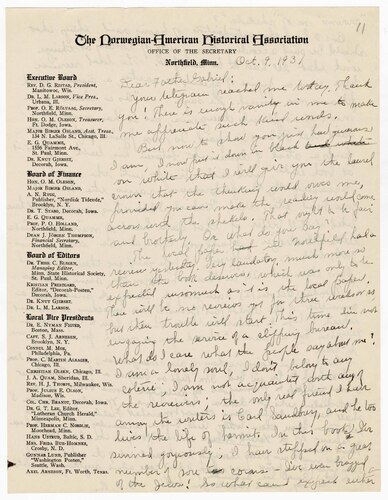 11
The Norwegian-American Historical Association
OFFICE OF THE SECRETARY
Northfield, Minn.
Oct. 9, 1931
Executive Board
REV. D. G. RISTAD, President,
Manitowoc, Wis.
DR. L. M. LARSON, Vice Pres.,
Urbana, Ill.
PROF. O. E. RÖLVAAG, Secretary,
Northfield, Minn.
HON. O. M. OLESON, Treasurer,
Ft. Dodge, Iowa.
MAJOR BIRGER OSLAND, Asst. Treas.
134 N. LaSalle St., Chicago, Ill.
E. G. QUAMME,
1556 Fairmont Ave.,
St. Paul, Minn.
DR. KNUT GJERSET,
Decorah, Iowa.
Board of Finance
HON. O. M. OLESON,
MAJOR BIRGER OSLAND,
A. N. RYGG,
Publisher, "Nordisk Tidende,"
Brooklyn, N. Y.
DR. T. STABO, Decorah, Iowa.
E. G. QUAMME,
St. Paul, Minn.
PROF. P. O. HOLLAND,
Northfield, Minn.
DEAN J. JÖRGEN THOMPSON,
Financial Secretary,
Northfield, Minn.
Board of Editors
DR. THEO. C. BLEGEN,
Managing Editor,
Minn. State Historical Society,
St. Paul, Minn.
KRISTIAN PRESTGARD,
Editor, "Decorah-Posten,"
Decorah, Iowa.
DR. KNUT GJERSET,
DR. L. M. LARSON.
Local Vice Presidents
DR. E. NYMAN FIGVED,
Boston, Mass.
CAPT. S. J. ARNESEN,
Brooklyn, N. Y.
CONSUL M. MOE,
Philadelphia, Pa.
PROF. C. MARIUS ALSAGER,
Chicago, Ill.
CHRISTIAN OLSEN, Chicago, Ill.
J. A. QUAM, Sheridan, Ill.
REV. H. J. THORPE, Milwaukee, Wis.
PROF. JULIUS E. OLSON,
Madison, Wis.
COL. CHR. BRANDT, Decorah, Iowa.
DR. G. T. LEE, Editor,
"Lutheran Church Herald,"
Minneapolis, Minn.
PROF. HERMAN C. NORDLIE,
Moorhead, Minn.
HANS USTRUD, Baltic, S. D.
MRS. FRIDA BUE-HOMNES,
Crosby, N. D.
GUNNAR LUND, Publisher
"Washington Posten,"
Seattle, Wash.
AXEL ARNESON, Ft. Worth, Texas.
Your telegram reached me today. Thank
you! There is enough vanity in me to make
me appreciate such kind words.
But now to what you
I am. I now put it down in black
on white that I will give you the laurel
crown that the thinking world owes me,
provided you can make the reading world come
across with the shekels. That ought to be fair
and brotherly. So what do you say?
review yesterday. The Northfield had a
very laudatory, much more so
than the book deserves, which was only to be
expected inasmuch as it is the local paper.
but then trouble will start. This time I'm not
engaging the service of a clipping bureau.
What do I care what the people say about me?
I am a lonely soul, I don't belong to any
coterie, I am not acquainted with any of
the reviewers; the only real friend I have
among the writers is Carl Sandburg, and he too
lives the life of hermit. In this book I've
sinned grievously, I have stepped on a great
number of corns
of the Jews! So what can I expect either